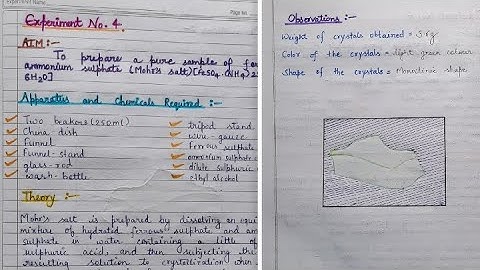 Experiment Name
Page No.
Experiment No. 4.
AIM:-
To prepare a pure sample of
ammonium sulphate (Mohr's salt) [FeSO4.(NH4)2S
6H2O]
Apparatus and Chemicals Required:-
Two beakers (250ml)
China dish
Funnel
Funnel-stand
glass-rod
wash-bottle
tripod stand
wire-gauze
ferrous sulphate
ammonium sulphate
dilute sulphuric
ethyl alcohol
Theory :-
Mohr's salt is prepared by dissolving an equi
mixture of hydrated ferrous sulphate and am
sulphate in water containing a little of
sulphuric acid, and then subjecting the
resulting solution to crystallization when
Observations:-
Weight of crystals obtained = 5.6g
Color of the crystals = light green colour
Shape of the crystals = Monoclinic shape